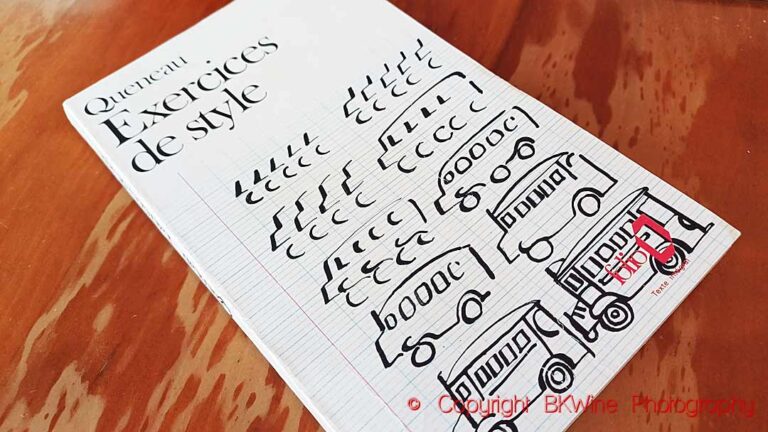 Queneau
Exercices
de style
folio
Texte intégral
© Copyright BKWine Photography